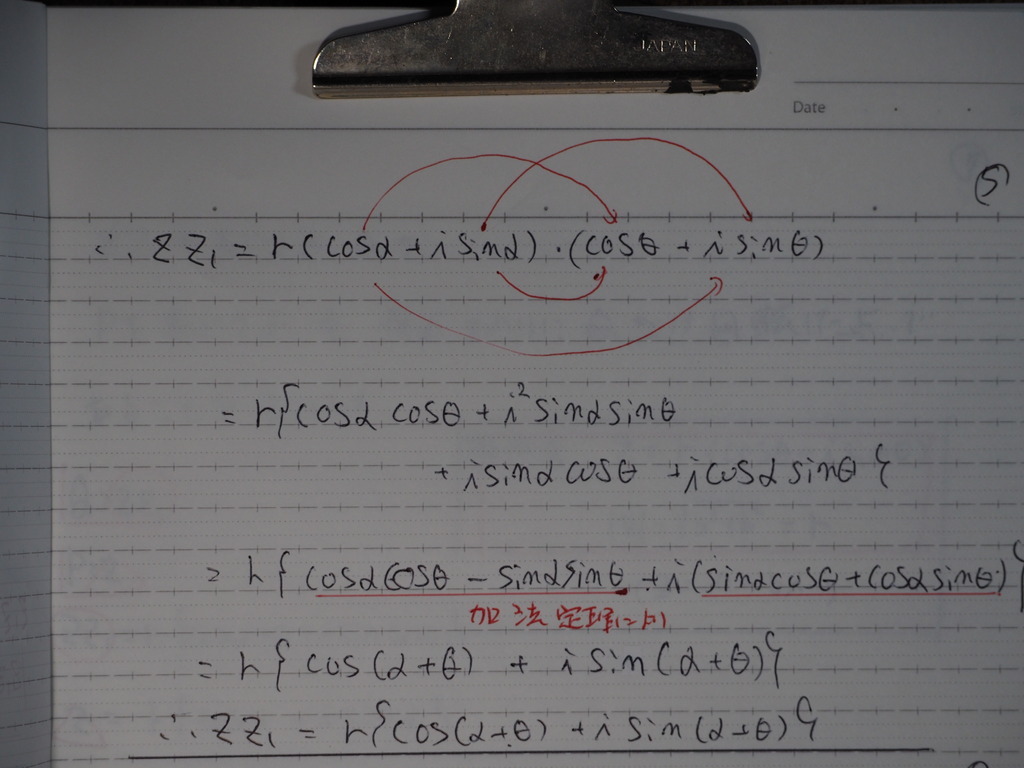 JAPAN
Date
⑤
∴ zz₁ = r(cosα + i sinα)・(cosθ + i sinθ)
= r{cosα cosθ + i² sinα sinθ
+ i sinα cosθ + i cosα sinθ}
= r{cosα cosθ - sinα sinθ + i(sinα cosθ + cosα sinθ)}
加法定理により
= r{cos(α+θ) + i sin(α+θ)}
∴ zz₁ = r{cos(α+θ) + i sin(α+θ)}